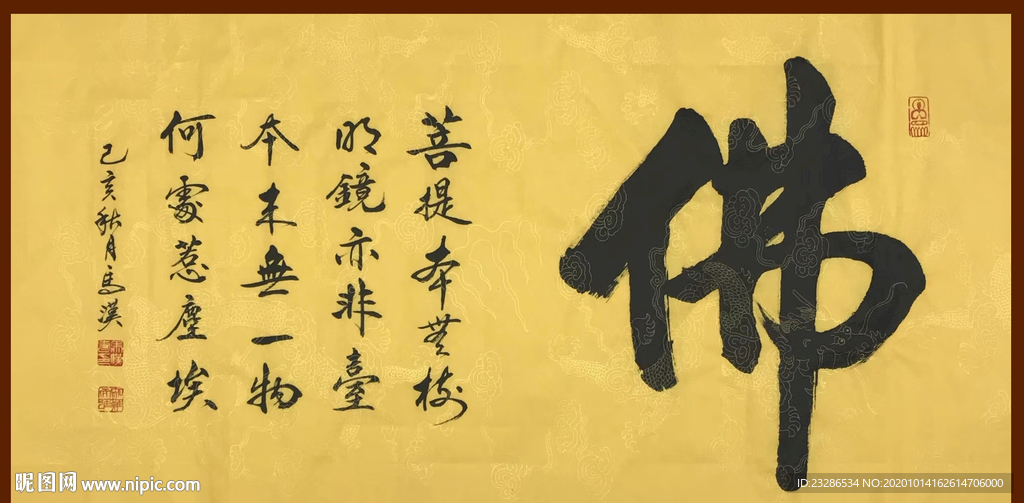 佛
菩提本無樹
明鏡亦非臺
本来無一物
何處惹塵埃
己亥秋月馬漢
昵图网 www.nipic.com
ID:23286534 NO:20201014162614706000